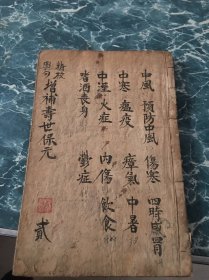 中風 預防中風 傷寒 四時感冒
中寒 瘟疫 瘴氣 中暑
中溼 火症 內傷 飲食
嗜酒喪身 鬱症
精校
圈句
增補壽世保元
貳